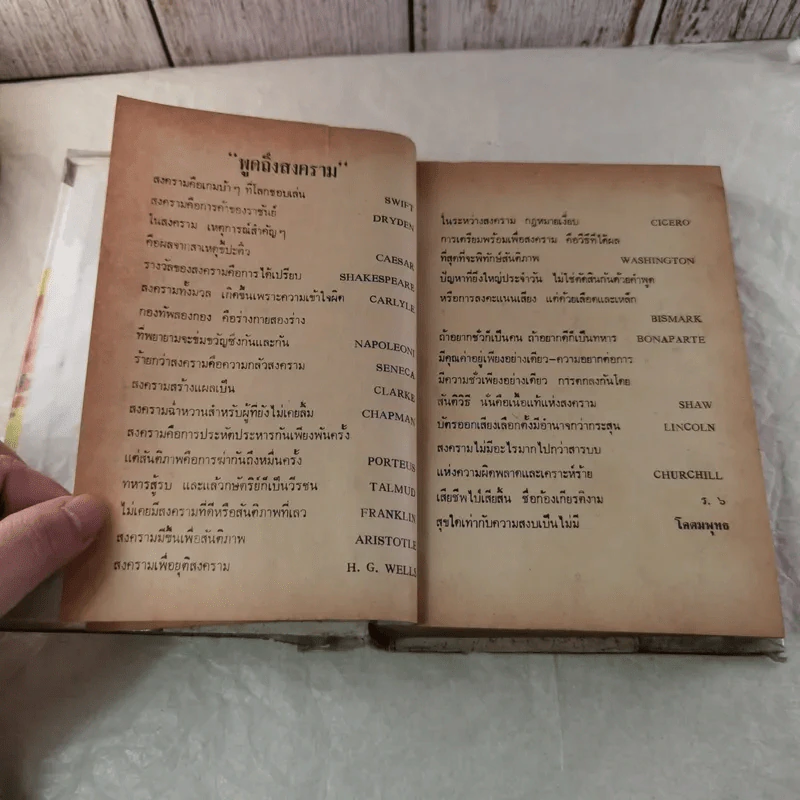 "พูดถึงสงคราม"
สงครามคือเกมบ้าๆ ที่โลกชอบเล่น SWIFT
สงครามคือการค้าของราชันย์ DRYDEN
ในสงคราม เหตุการณ์สำคัญๆ
คือผลจากสาเหตุขี้ปะติ๋ว CAESAR
รางวัลของสงครามคือการได้เปรียบ SHAKESPEARE
สงครามทั้งมวล เกิดขึ้นเพราะความเข้าใจผิด CARLYLE
กองทัพสองกอง คือร่างกายสองร่าง
ที่พยายามจะข่มขวัญซึ่งกันและกัน NAPOLEON
ร้ายกว่าสงครามคือความกลัวสงคราม SENECA
สงครามสร้างแผลเป็น CLARKE
สงครามฉ่ำหวานสำหรับผู้ที่ยังไม่เคยลิ้ม CHAPMAN
สงครามคือการประหัตประหารกันเพียงพันครั้ง
แต่สันติภาพคือการฆ่ากันถึงหมื่นครั้ง PORTEUS
ทหารสู้รบ และแล้วกษัตริย์ก็เป็นวีรชน TALMUD
ไม่เคยมีสงครามที่ดีหรือสันติภาพที่เลว FRANKLIN
สงครามมีขึ้นเพื่อสันติภาพ ARISTOTLE
สงครามเพื่อยุติสงคราม H. G. WELLS
ในระหว่างสงคราม กฎหมายเงียบ CICERO
การเตรียมพร้อมเพื่อสงคราม คือวิธีที่ได้ผล
ที่สุดที่จะพิทักษ์สันติภาพ WASHINGTON
ปัญหาที่ยิ่งใหญ่ประจำวัน ไม่ใช่ตัดสินกันด้วยคำพูด
หรือการลงคะแนนเสียง แต่ด้วยเลือดและเหล็ก
BISMARK
ถ้าอยากชั่วก็เป็นคน ถ้าอยากดีก็เป็นทหาร BONAPARTE
มีคุณค่าอยู่เพียงอย่างเดียว-ความอยากต่อการ
มีความชั่วเพียงอย่างเดียว การตกลงกันโดย
สันติวิธี นั่นคือเนื้อแท้แห่งสงคราม SHAW
บัตรออกเสียงเลือกตั้งมีอำนาจกว่ากระสุน LINCOLN
สงครามไม่มีอะไรมากไปกว่าสารบบ
แห่งความผิดพลาดและเคราะห์ร้าย CHURCHILL
เสียชีพไป่เสียสิ้น ชื่อก้องเกียรติงาม ร. ๖
สุขใดเท่ากับความสงบเป็นไม่มี โคดมพุทธ